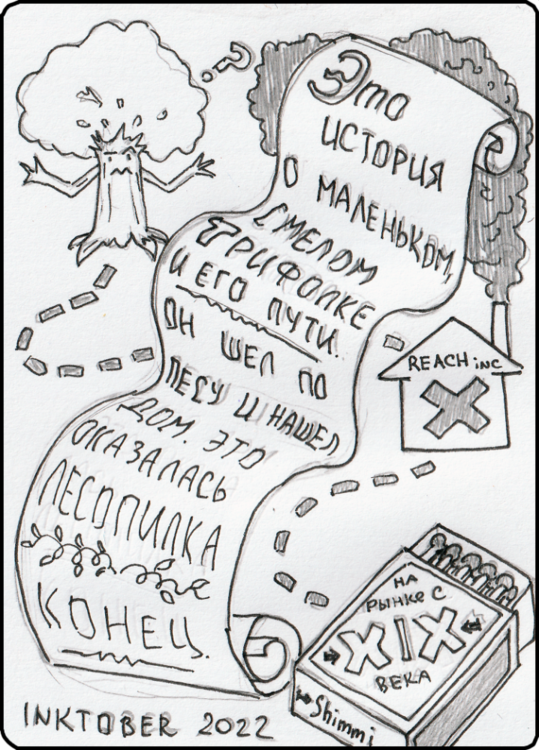 Это
ИСТОРИЯ
О МАЛЕНЬКОМ,
СМЕЛОМ
ТРИФОЛКЕ
И ЕГО ПУТИ.
ОН ШЕЛ ПО
ЛЕСУ И НАШЕЛ
ДОМ. ЭТО
ОКАЗАЛАСЬ
ЛЕСОПИЛКА
КОНЕЦ.
?
REACH inc
НА
РЫНКЕ С
XIX
ВЕКА
Shimmi
INKTOBER 2022